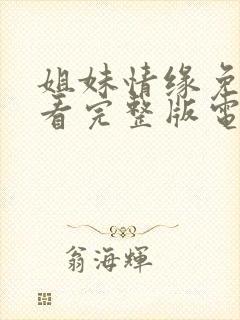 姐妹情缘免
看完整版電
翁海輝